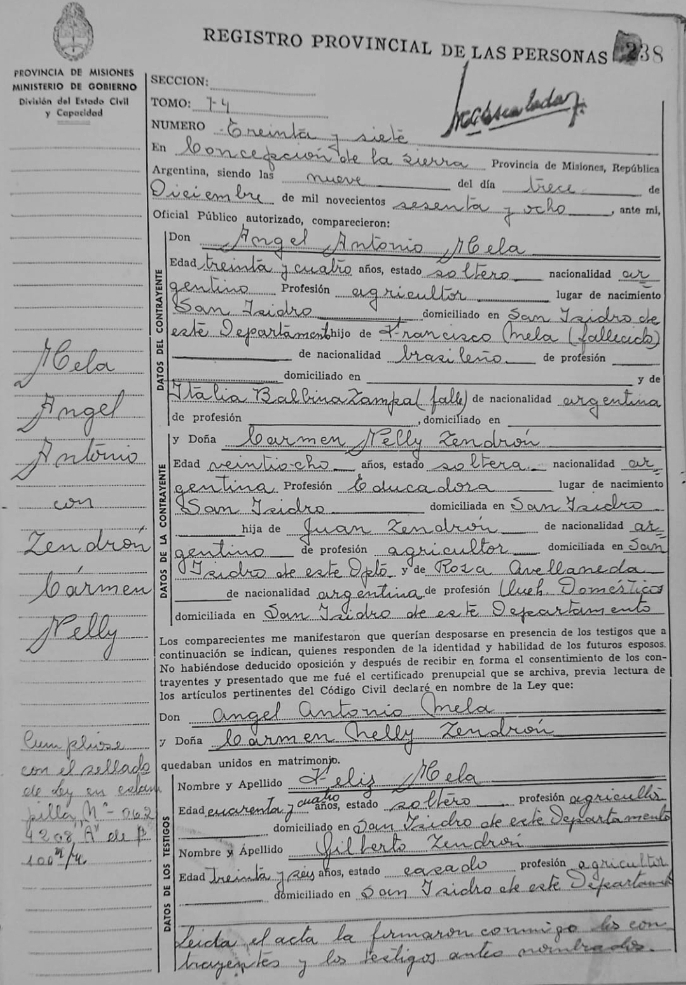 REGISTRO PROVINCIAL DE LAS PERSONAS
238
PROVINCIA DE MISIONES
MINISTERIO DE GOBIERNO
División del Estado Civil
y Capacidad
SECCION:
TOMO: 74
NUMERO Treinta y siete
En Concepción de la Sierra Provincia de Misiones, República
Argentina, siendo las nueve del día trece de
Diciembre de mil novecientos sesenta y ocho, ante mi,
Oficial Público autorizado, comparecieron:
DATOS DEL CONTRAYENTE
Don Angel Antonio Mela
Edad treinta y cuatro años, estado soltero nacionalidad ar
gentino Profesión agricultor lugar de nacimiento
San Isidro domiciliado en San Isidro de
este Departament hijo de Francisco Mela (fallecido)
de nacionalidad brasileño de profesión
domiciliado en y de
Italia Balbina Zampa (falle) de nacionalidad argentina
de profesión, domiciliado en
DATOS DE LA CONTRAYENTE
y Doña Carmen Nelly Zendrón
Edad veintiocho años, estado soltera nacionalidad ar
gentina Profesión Educadora lugar de nacimiento
San Isidro domiciliada en San Isidro
hija de Juan Zendrón de nacionalidad ar
gentino de profesión agricultor domiciliada en San
Isidro de este Dpto y de Roza Avellaneda
de nacionalidad argentina de profesión Queh. Domésticos
domiciliada en San Isidro de este Departamento
Los comparecientes me manifestaron que querían desposarse en presencia de los testigos que a
continuación se indican, quienes responden de la identidad y habilidad de los futuros esposos.
No habiéndose deducido oposición y después de recibir en forma el consentimiento de los con-
trayentes y presentado que me fué el certificado prenupcial que se archiva, previa lectura de
los artículos pertinentes del Código Civil declaré en nombre de la Ley que:
Don Angel Antonio Mela
y Doña Carmen Nelly Zendrón
quedaban unidos en matrimonio.
DATOS DE LOS TESTIGOS
Nombre y Apellido Feliz Mela
Edad cuarenta y cuatro años, estado soltero profesión agricultor
domiciliado en San Isidro de este Departamento
Nombre y Apellido Gilberto Zendrón
Edad treinta y seis años, estado casado profesión agricultor
domiciliado en San Isidro de este Departamen
Leida el acta la firmaron conmigo los con
trayentes y los testigos antes nombrados.
Mela
Angel
Antonio
con
Zendrón
Cármen
Nelly
Cumpliose
con el sellado
de ley en estam
pilla, Nº